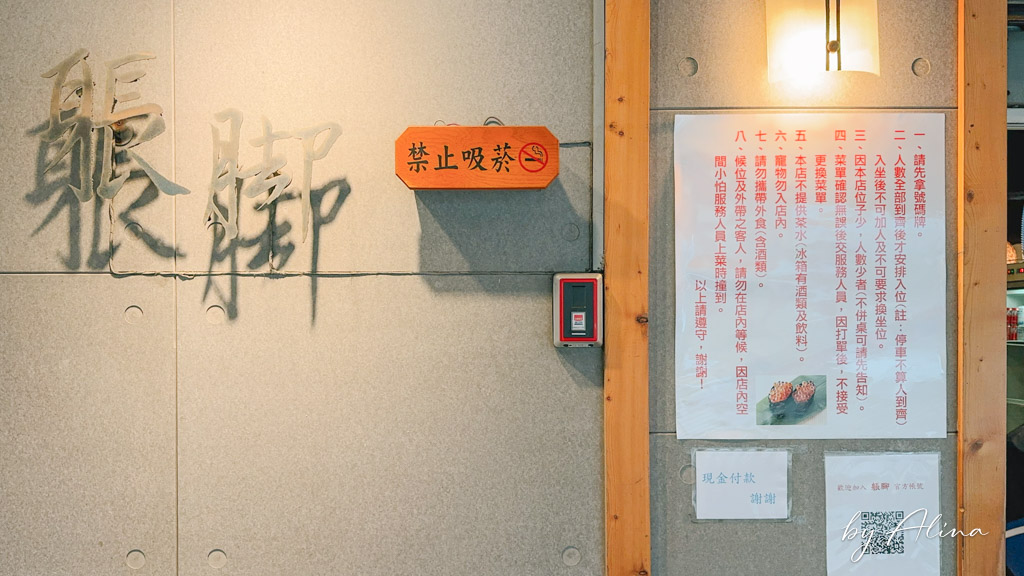 躼脚
禁止吸菸
一、請先拿號碼牌。
二、人數全部到齊後才安排入位(註：停車不算人到齊)
入坐後不可加人及不可要求換坐位。
三、因本店位子少，人數少者(不併桌可請先告知)。
四、菜單確認無誤後交服務人員，因打單後，不接受
更換菜單。
五、本店不提供茶水(冰箱有酒類及飲料)。
六、寵物勿入店內。
七、請勿攜帶外食(含酒類)。
八、候位及外帶之客人，請勿在店內等候，因店內空
間小怕服務人員上菜時撞到。
以上請遵守，謝謝！
現金付款
謝謝
歡迎加入 躼腳 官方帳號
by Alina